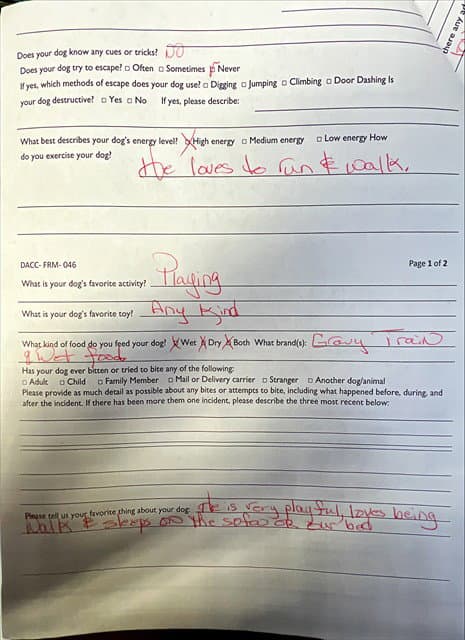 there any ad
Does your dog know any cues or tricks? NO
Does your dog try to escape? □ Often □ Sometimes □ Never
If yes, which methods of escape does your dog use? □ Digging □ Jumping □ Climbing □ Door Dashing Is
your dog destructive? □ Yes □ No If yes, please describe:
What best describes your dog's energy level? □ High energy □ Medium energy □ Low energy How
do you exercise your dog?
He loves to run & walk.
DACC- FRM- 046 Page 1 of 2
What is your dog's favorite activity? Playing
What is your dog's favorite toy? Any Kind
What kind of food do you feed your dog? □ Wet □ Dry □ Both What brand(s): Gravy Train
& Wet food
Has your dog ever bitten or tried to bite any of the following:
□ Adult □ Child □ Family Member □ Mail or Delivery carrier □ Stranger □ Another dog/animal
Please provide as much detail as possible about any bites or attempts to bite, including what happened before, during, and
after the incident. If there has been more them one incident, please describe the three most recent below:
Please tell us your favorite thing about your dog: He is very playful, loves being
walk & sleeps on the sofa or our bed